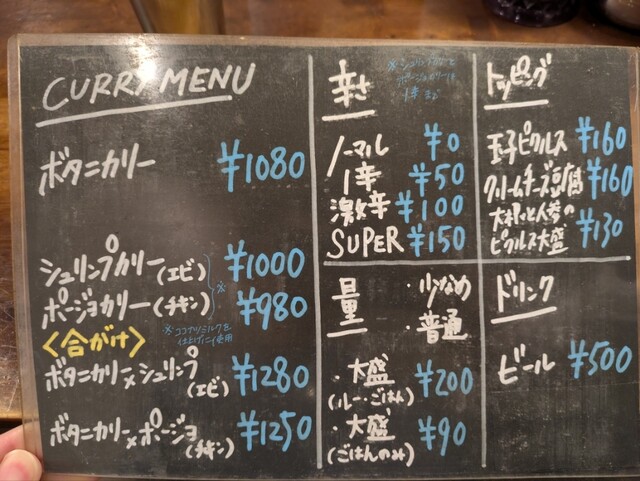 CURRY MENU
ボタニカリー ¥1080
シュリンプカリー(エビ) ¥1000
ポージョカリー(チキン) ¥980
※
※ココナツミルクを
仕上げに使用
<合がけ>
ボタニカリー×シュリンプ
(エビ) ¥1280
ボタニカリー×ポージョ
(チキン) ¥1250
辛さ
※シュリンプカリーと
ポージョカリーは
1辛まで
ノーマル ¥0
1辛 ¥50
激辛 ¥100
SUPER ¥150
量
・少なめ
・普通
・大盛
(ルー・ごはん) ¥200
・大盛
(ごはんのみ) ¥90
トッピング
玉子ピクルス ¥160
クリームチーズ豆腐 ¥160
大根と人参の
ピクルス大盛 ¥130
ドリンク
ビール ¥500